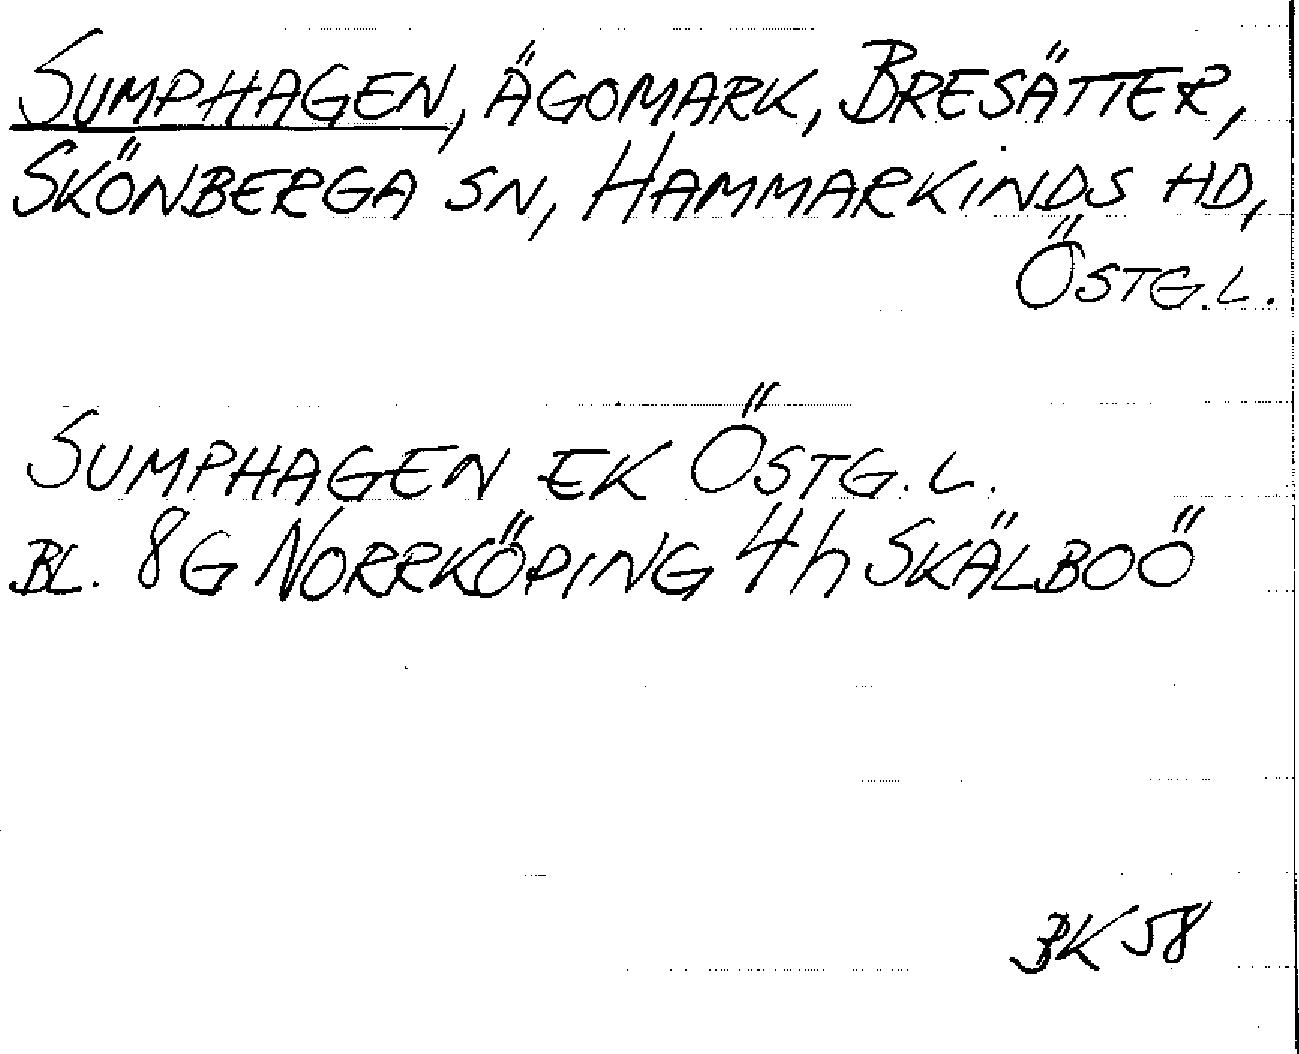 SUMPHAGEN, ÄGOMARK, BRESÄTTER,
SKÖNBERGA SN, HAMMARKINDS HD,
ÖSTG.L.
SUMPHAGEN EK ÖSTG.L.
BL. 8G NORRKÖPING 4h SKÄLBOÖ
BK 58